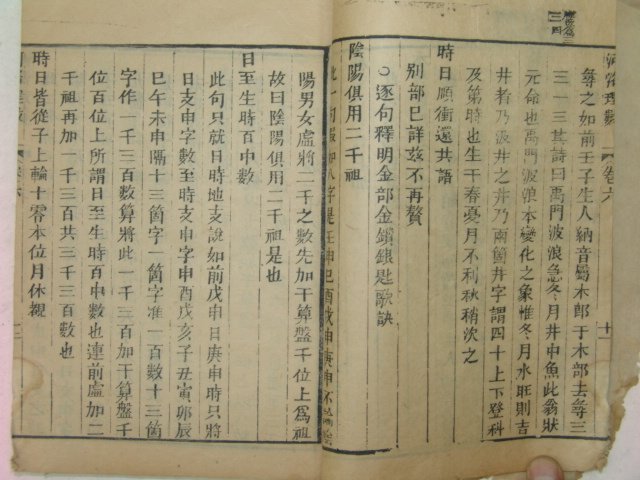 尋之如前壬子生人納音屬木郎于木部去尋三
三一三其詩曰禹門波浪急冬月井中魚此爻狀
元命也禹門波浪本變化之象惟冬月水旺則吉
井者乃波井之井乃兩箇井字謂四十上下登科
及第時也生于春憂月不利秋稍次之
時日順衝還共語
別部已詳茲不再贅
○逐句釋明金部金鎖銀匙歌訣
陰陽俱用二千祖
此一句假如八字是壬申巳酉戊申庚申不論陰
陽男女虛將二千之數先加于算盤千位上爲祖
故曰陰陽俱用二千祖是也
日至生時百中數
此句只就日時地支說如前戊申日庚申時只將
日支申字數至時支申字申酉戌亥子丑寅卯辰
巳午未申隔十三箇字一箇字准一百數十三箇
字作一千三百數算將此一千三百加于算盤千
位百位上所謂日至生時百中數也連前虛加二
千祖再加一千三百共三千三百數也
時日皆從子上輪十零本位月休親